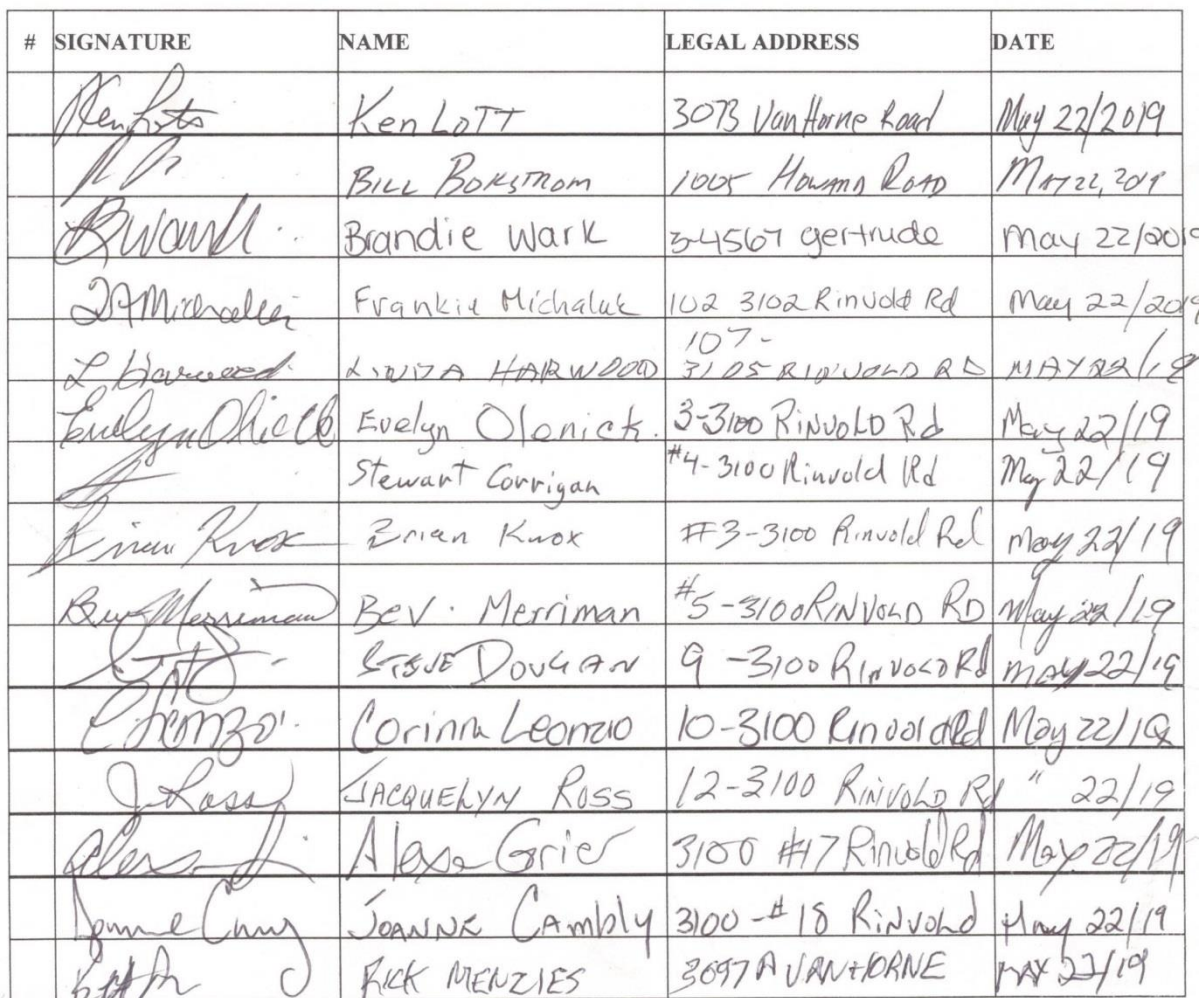 # SIGNATURE NAME LEGAL ADDRESS DATE
Ken Lott 3073 VanHorne Road May 22/2019
BILL BORGSTROM 1005 Howard ROAD MAY 22, 2019
Brandie Wark 3-4567 gertrude May 22/2019
Frankie Michaluk 102 3102 Rinvold Rd May 22/2019
107-
L Harwood LINDA HARWOOD 3105 RINVOLD RD MAY 22/19
Evelyn Olenick. 3-3100 RINVOLD Rd May 22/19
Stewart Corrigan #4-3100 Rinvold Rd May 22/19
Brian Knox Brian Knox #3-3100 Rinvold Rd May 22/19
Bev Merriman Bev. Merriman #5-3100 RINVOLD RD May 22/19
STEVE DOUGAN 9-3100 RINVOLD Rd MAY 22/19
Corinna Leonzio 10-3100 Rinvold Rd May 22/19
J Ross JACQUELYN ROSS 12-3100 RINVOLD Rd " 22/19
Alexa Grier 3100 #17 Rinvold Rd May 22/19
JOANNE CAMBLY 3100-#18 RINVOLD May 22/19
RICK MENZIES 3697A VANHORNE MAY 22/19